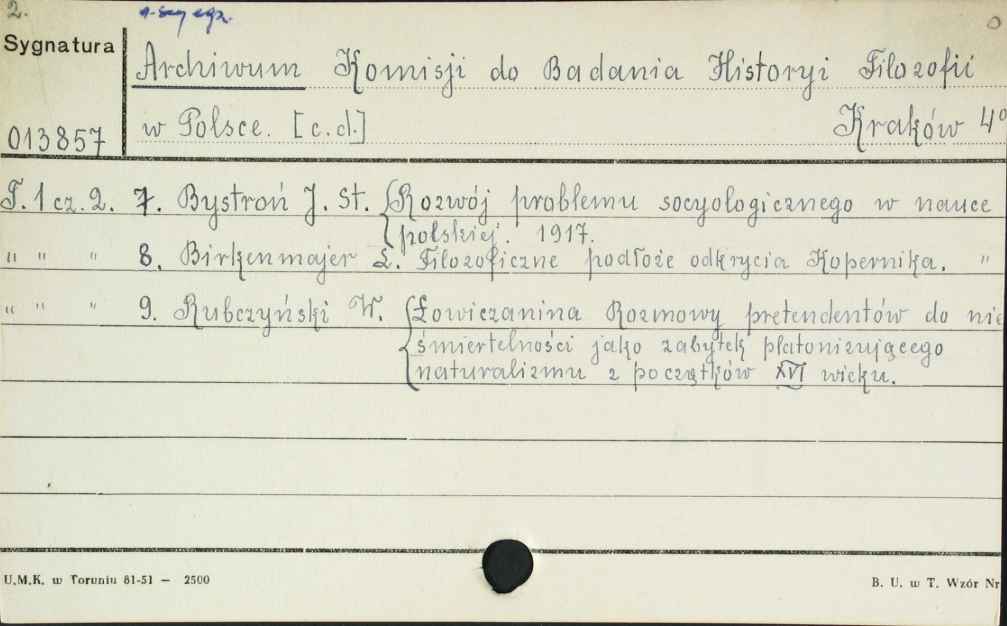 2. a-szy egz. 0
Sygnatura
Archiwum Komisji do Badania Historyi Filozofii
013857 w Polsce. [c.d.] Kraków 4º
T. 1 cz. 2. 7. Bystroń J. St. Rozwój problemu socyologicznego w nauce
polskiej. 1917.
" " " 8. Birkenmajer L. Filozoficzne podłoże odkrycia Kopernika. "
" " " 9. Rubczyński W. Łowiczanina Rozmowy pretendentów do nie
śmiertelności jako zabytek platonizującego
naturalizmu z początków XVI wieku.
U.M.K. w Toruniu 81-51 — 2500 B. U. w T. Wzór Nr